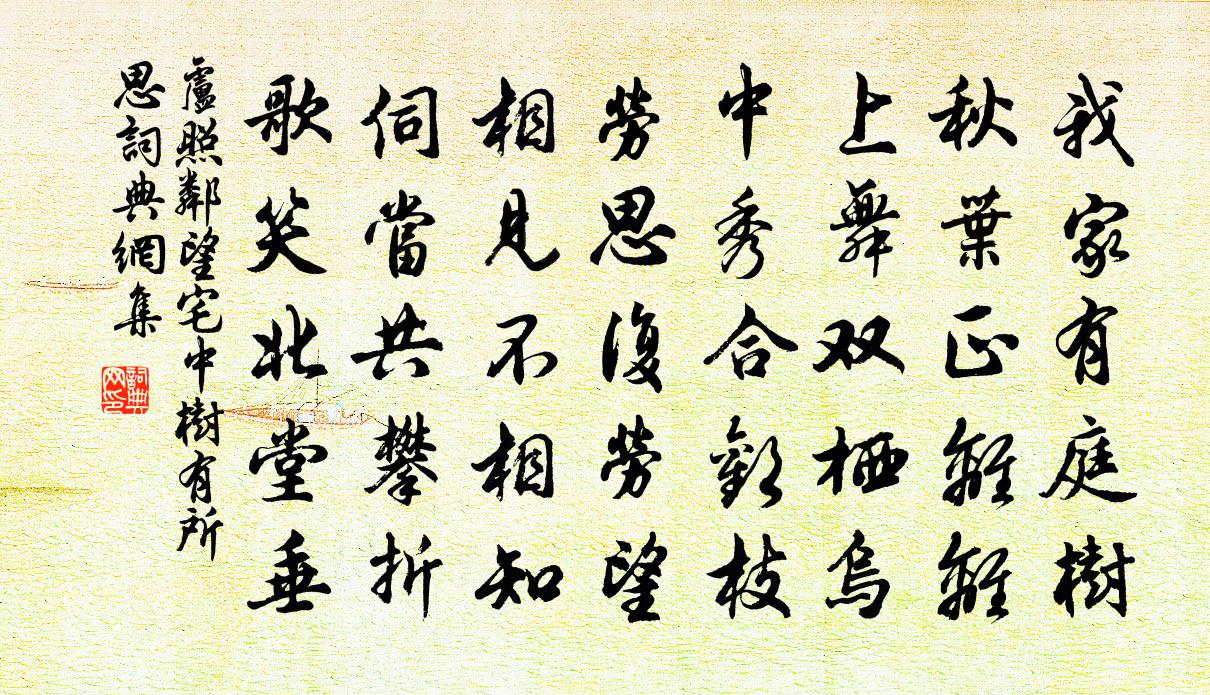 我家有庭樹
秋葉正離離
上舞双栖烏
中秀合歡枝
勞思復勞望
相見不相知
伺當共攀折
歌笑北堂垂
盧照鄰望宅中樹有所
思詞典網集
詞典网印